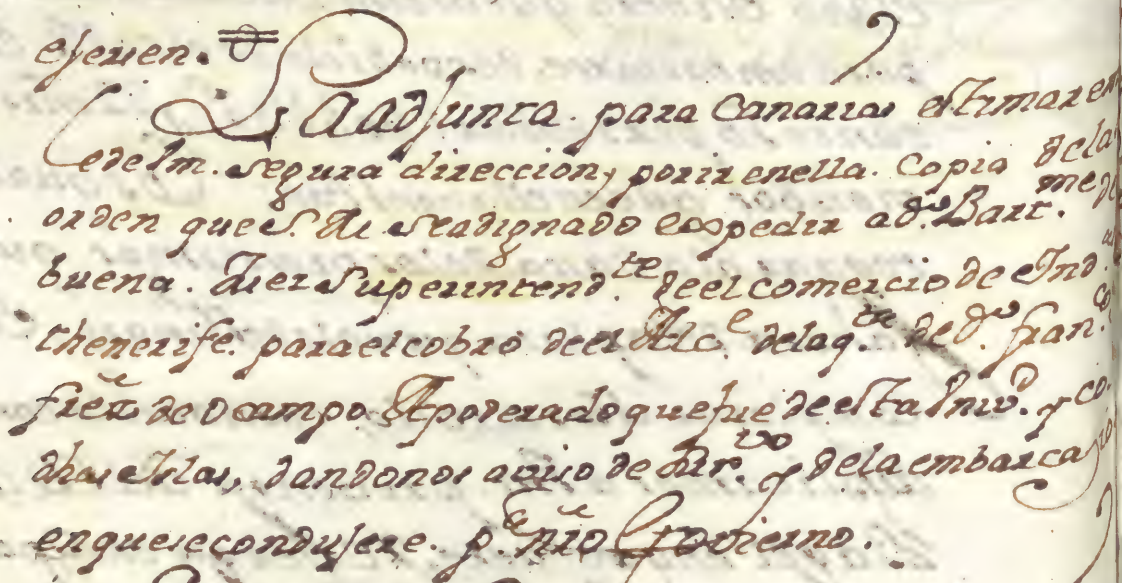 ejersen.
La adjunta. para Canarias estimaren
le de lm. segura direccion, por ir en ella. Copia de la
orden que S. M. se a dignado expedir a dn. Bart.me de
buena. Juez Superintend.te de el comercio de Ind.
thenerife. para el cobro de el Alc.e de la q.ta de dn. fran.co
frez de Ocampo Apoderado que fue de esta Univ.d y co.
dhas Islas, dandonos aviso de Rr.vo y de la embarcazio
en que se condujere. p.a nro Govierno.